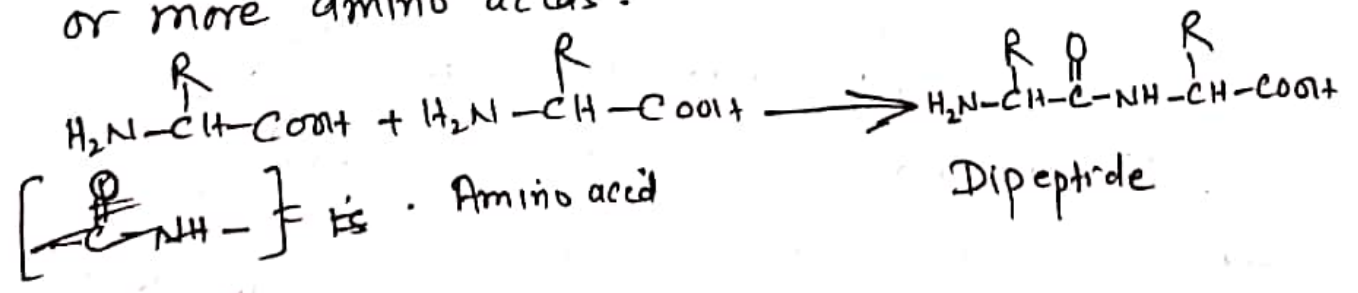 or more amino acids.
R R R O R
H₂N-CH-COOH + H₂N-CH-COOH → H₂N-CH-C-NH-CH-COOH
[-C-NH-] is . Amino acid Dipeptide
O